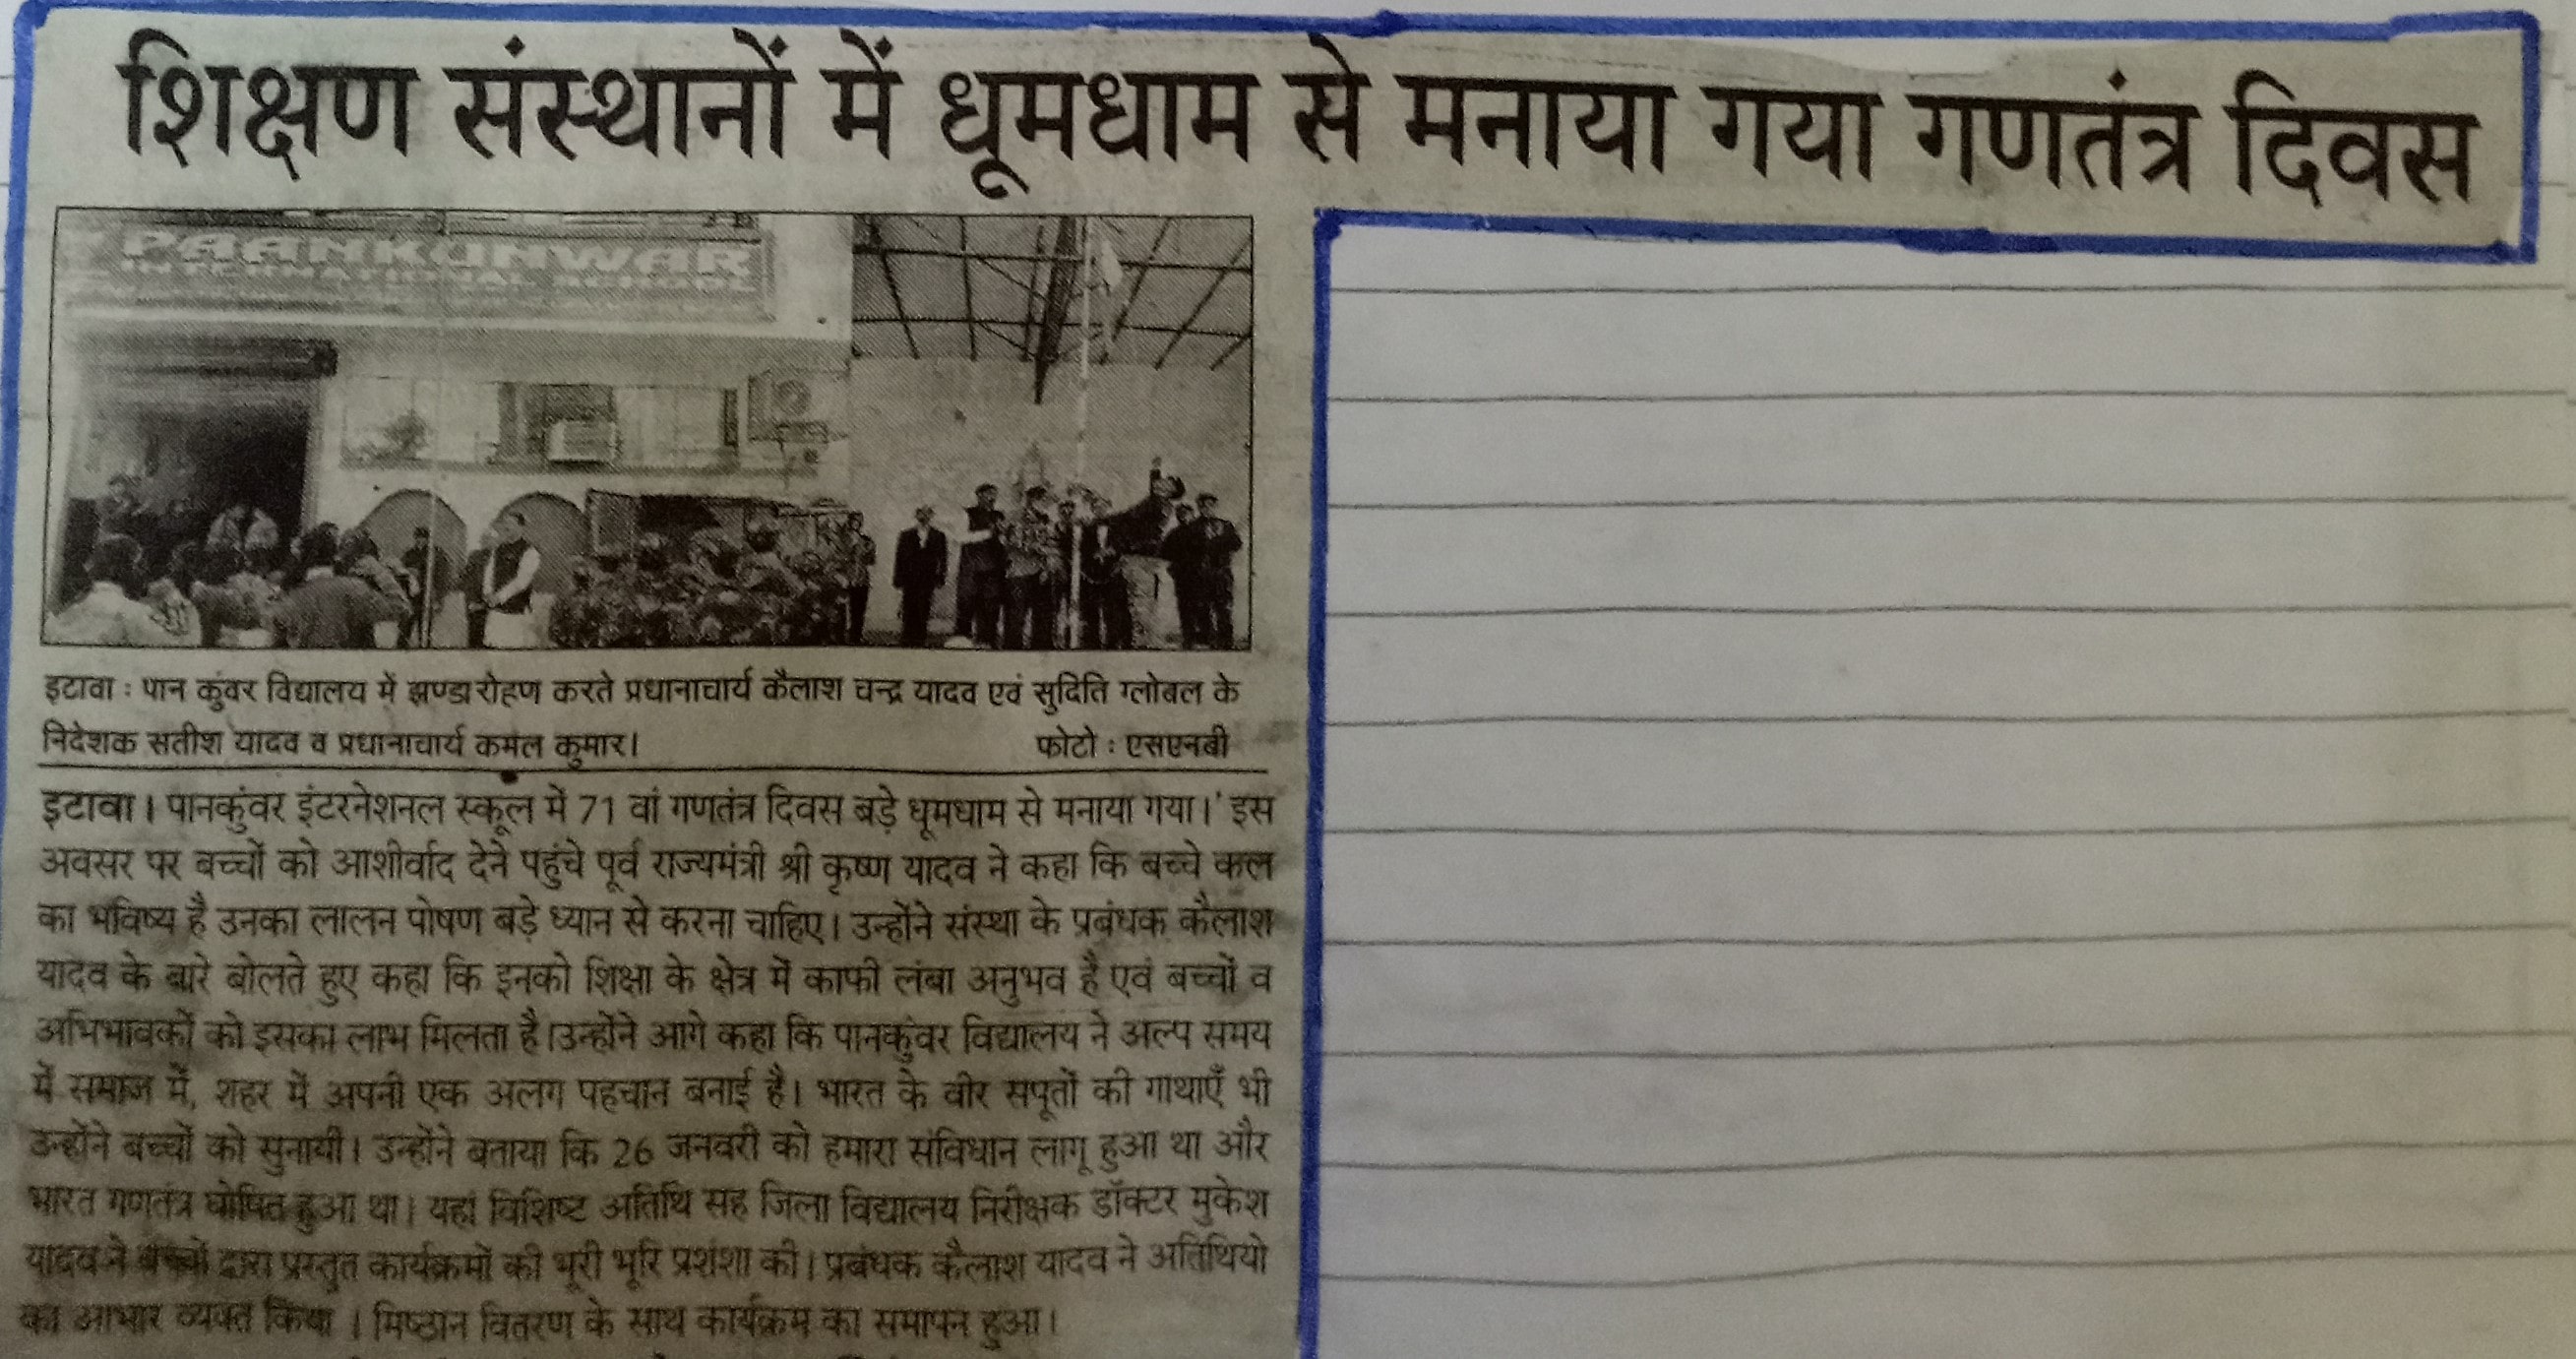 शिक्षण संस्थानों में धूमधाम से मनाया गया गणतंत्र दिवस
PAANKUNWAR
INTERNATIONAL SCHOOL
इटावा : पान कुंवर विद्यालय में झण्डारोहण करते प्रधानाचार्य कैलाश चन्द्र यादव एवं सुदिति ग्लोबल के
निदेशक सतीश यादव व प्रधानाचार्य कमल कुमार। फोटो : एसएनबी
इटावा। पानकुंवर इंटरनेशनल स्कूल में 71 वां गणतंत्र दिवस बड़े धूमधाम से मनाया गया।' इस
अवसर पर बच्चों को आशीर्वाद देने पहुंचे पूर्व राज्यमंत्री श्री कृष्ण यादव ने कहा कि बच्चे कल
का भविष्य है उनका लालन पोषण बड़े ध्यान से करना चाहिए। उन्होंने संस्था के प्रबंधक कैलाश
यादव के बारे बोलते हुए कहा कि इनको शिक्षा के क्षेत्र में काफी लंबा अनुभव है एवं बच्चों व
अभिभावकों को इसका लाभ मिलता है।उन्होंने आगे कहा कि पानकुंवर विद्यालय ने अल्प समय
में समाज में, शहर में अपनी एक अलग पहचान बनाई है। भारत के वीर सपूतों की गाथाएँ भी
उन्होंने बच्चों को सुनायीं। उन्होंने बताया कि 26 जनवरी को हमारा संविधान लागू हुआ था और
भारत गणतंत्र घोषित हुआ था। यहां विशिष्ट अतिथि सह जिला विद्यालय निरीक्षक डॉक्टर मुकेश
यादव ने बच्चों द्वारा प्रस्तुत कार्यक्रमों की भूरी भूरि प्रशंशा की। प्रबंधक कैलाश यादव ने अतिथियो
का आभार व्यक्त किया । मिष्ठान वितरण के साथ कार्यक्रम का समापन हुआ।